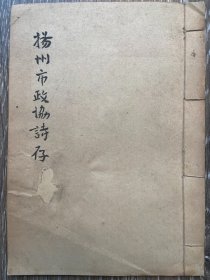 揚州市政協詩存